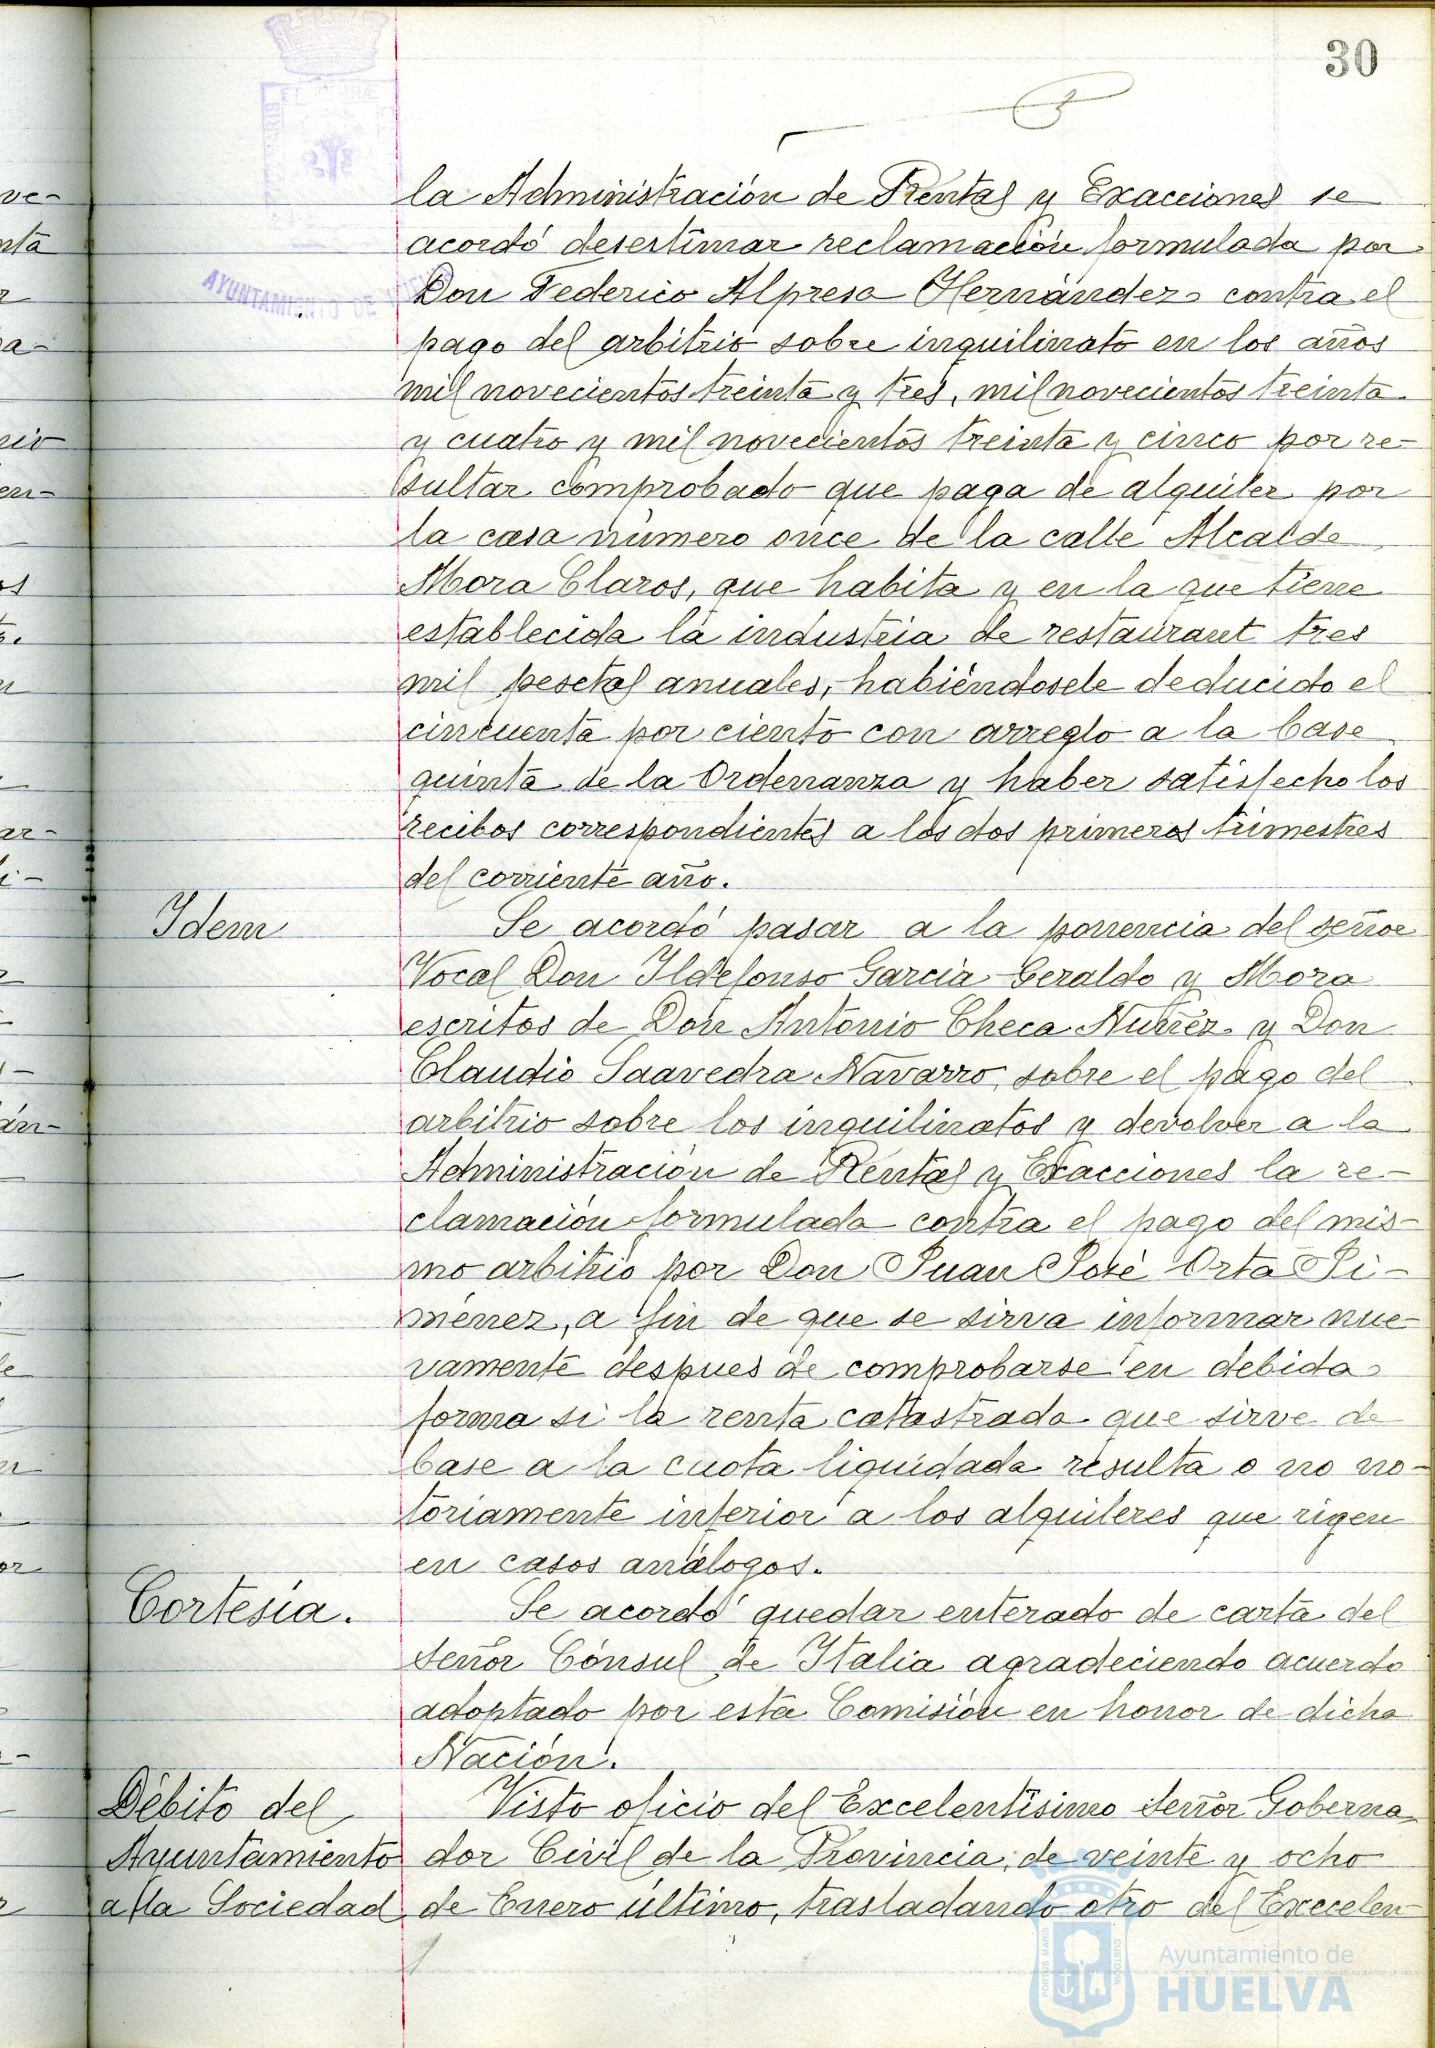 30
la Administración de Rentas y Exacciones se
acordó desestimar reclamación formulada por
Don Federico Alpresa Hernández contra el
pago del arbitrio sobre inquilinato en los años
mil novecientos treinta y tres, mil novecientos treinta
y cuatro y mil novecientos treinta y cinco por re-
sultar comprobado que paga de alquiler por
la casa número once de la calle Alcalde
Mora Claros, que habita y en la que tiene
establecida la industria de restaurant tres
mil pesetas anuales, habiéndosele deducido el
cincuenta por ciento con arreglo a la base
quinta de la Ordenanza y haber satisfecho los
recibos correspondientes a los dos primeros trimestres
del corriente año.
Idem
Se acordó pasar a la ponencia del señor
Vocal Don Ildefonso García Geraldo y Mora
escritos de Don Antonio Checa Núñez y Don
Claudio Saavedra Navarro, sobre el pago del
arbitrio sobre los inquilinatos y devolver a la
Administración de Rentas y Exacciones la re-
clamación formulada contra el pago del mis-
mo arbitrio por Don Juan José Orta Ji-
ménez, a fin de que se sirva informar nue-
vamente despues de comprobarse en debida
forma si la renta catastrada que sirve de
base a la cuota liquidada resulta o no no-
toriamente inferior a los alquileres que rigen
en casos análogos.
Cortesía.
Se acordó quedar enterado de carta del
Señor Cónsul de Italia agradeciendo acuerdo
adoptado por esta Comisión en honor de dicha
Nación.
Débito del
Ayuntamiento
a la Sociedad
Visto oficio del Excelentísimo Señor Goberna-
dor Civil de la Provincia, de veinte y ocho
de Enero último, trasladando otro del Execelen-
AYUNTAMIENTO DE HUELVA
PORTUS MARIS
CUSTODIA
Ayuntamiento de
HUELVA